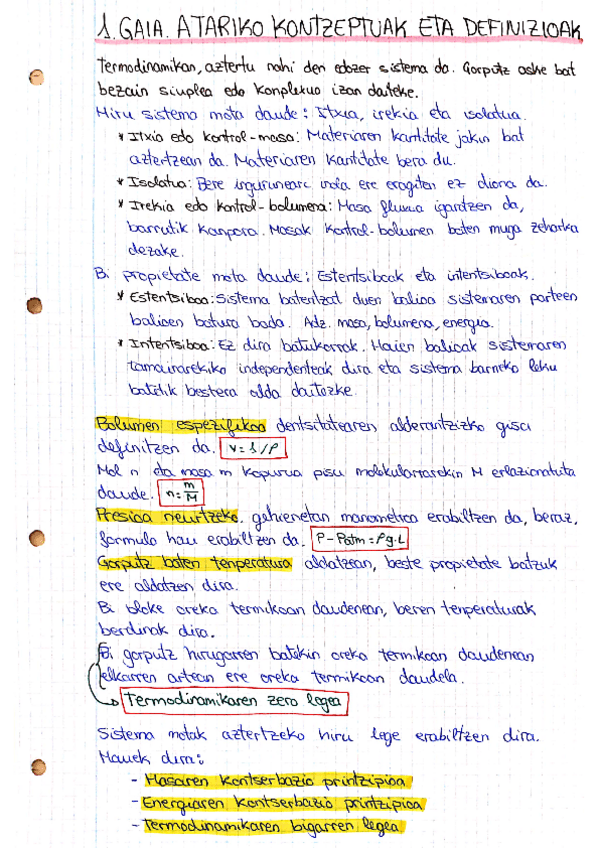 1. GAIA. ATARIKO KONTZEPTUAK ETA DEFINIZIOAK
Termodinamikan, aztertu nahi den edozer sistema da. Gorputz aske bat
bezain sinplea edo konplexua izan daiteke.
Hiru sistema mota daude: Itxia, irekia eta isolatua.
* Itxia edo kontrol-masa: Materiaren kantitate jakin bat
aztertzean da. Materiaren kantitate bera du.
* Isolatua: Bere ingurunearekin inola ere eragiten ez diona da.
* Irekia edo kontrol-bolumena: Masa fluxua igartzen da,
barrutik kanpora. Masak kontrol-bolumen baten muga zeharka
dezake.
Bi propietate mota daude: Estentsiboak eta intentsiboak.
* Estentsiboa: Sistema batentzat duen balioa sistemaren parteen
balioen batura bada. Adz. masa, bolumena, energia.
* Intentsiboa: Ez dira batukorrak. Haien balioak sistemaren
tamainarekiko independenteak dira eta sistema barneko leku
batetik bestera alda daitezke.
Bolumen espezifikoa dentsitatearen alderantzizko gisa
definitzen da. v = 1/ρ
Mol n eta masa m kopurua pisu molekularrarekin M erlazionatuta
daude. n = m/M
Presioa neurtzeko, gehienetan manometroa erabiltzen da, beraz,
formula hau erabiltzen da. P - Patm = ρg.L
Gorputz baten tenperatura aldatzean, beste propietate batzuk
ere aldatzen dira.
Bi bloke oreka termikoan daudenean, beren tenperaturak
berdinak dira.
Bi gorputz hirugarren batekin oreka termikoan daudenean
elkarren artean ere oreka termikoan daudela.
Termodinamikaren zero legea
Sistema motak aztertzeko hiru lege erabiltzen dira.
Hauek dira:
- Masaren kontserbazio printzipioa
- Energiaren kontserbazio printzipioa
- Termodinamikaren bigarren legea